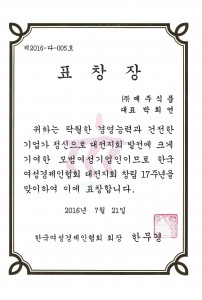 제2016-다-005호
표 창 장
㈜예주식품
대표 박희연
귀하는 탁월한 경영능력과 건전한
기업가 정신으로 대전지회 발전에 크게
기여한 모범여성기업인이므로 한국
여성경제인협회 대전지회 창립 17주년을
맞이하여 이에 표창합니다.
2016년 7월 21일
한국여성경제인협회 회장 한무경